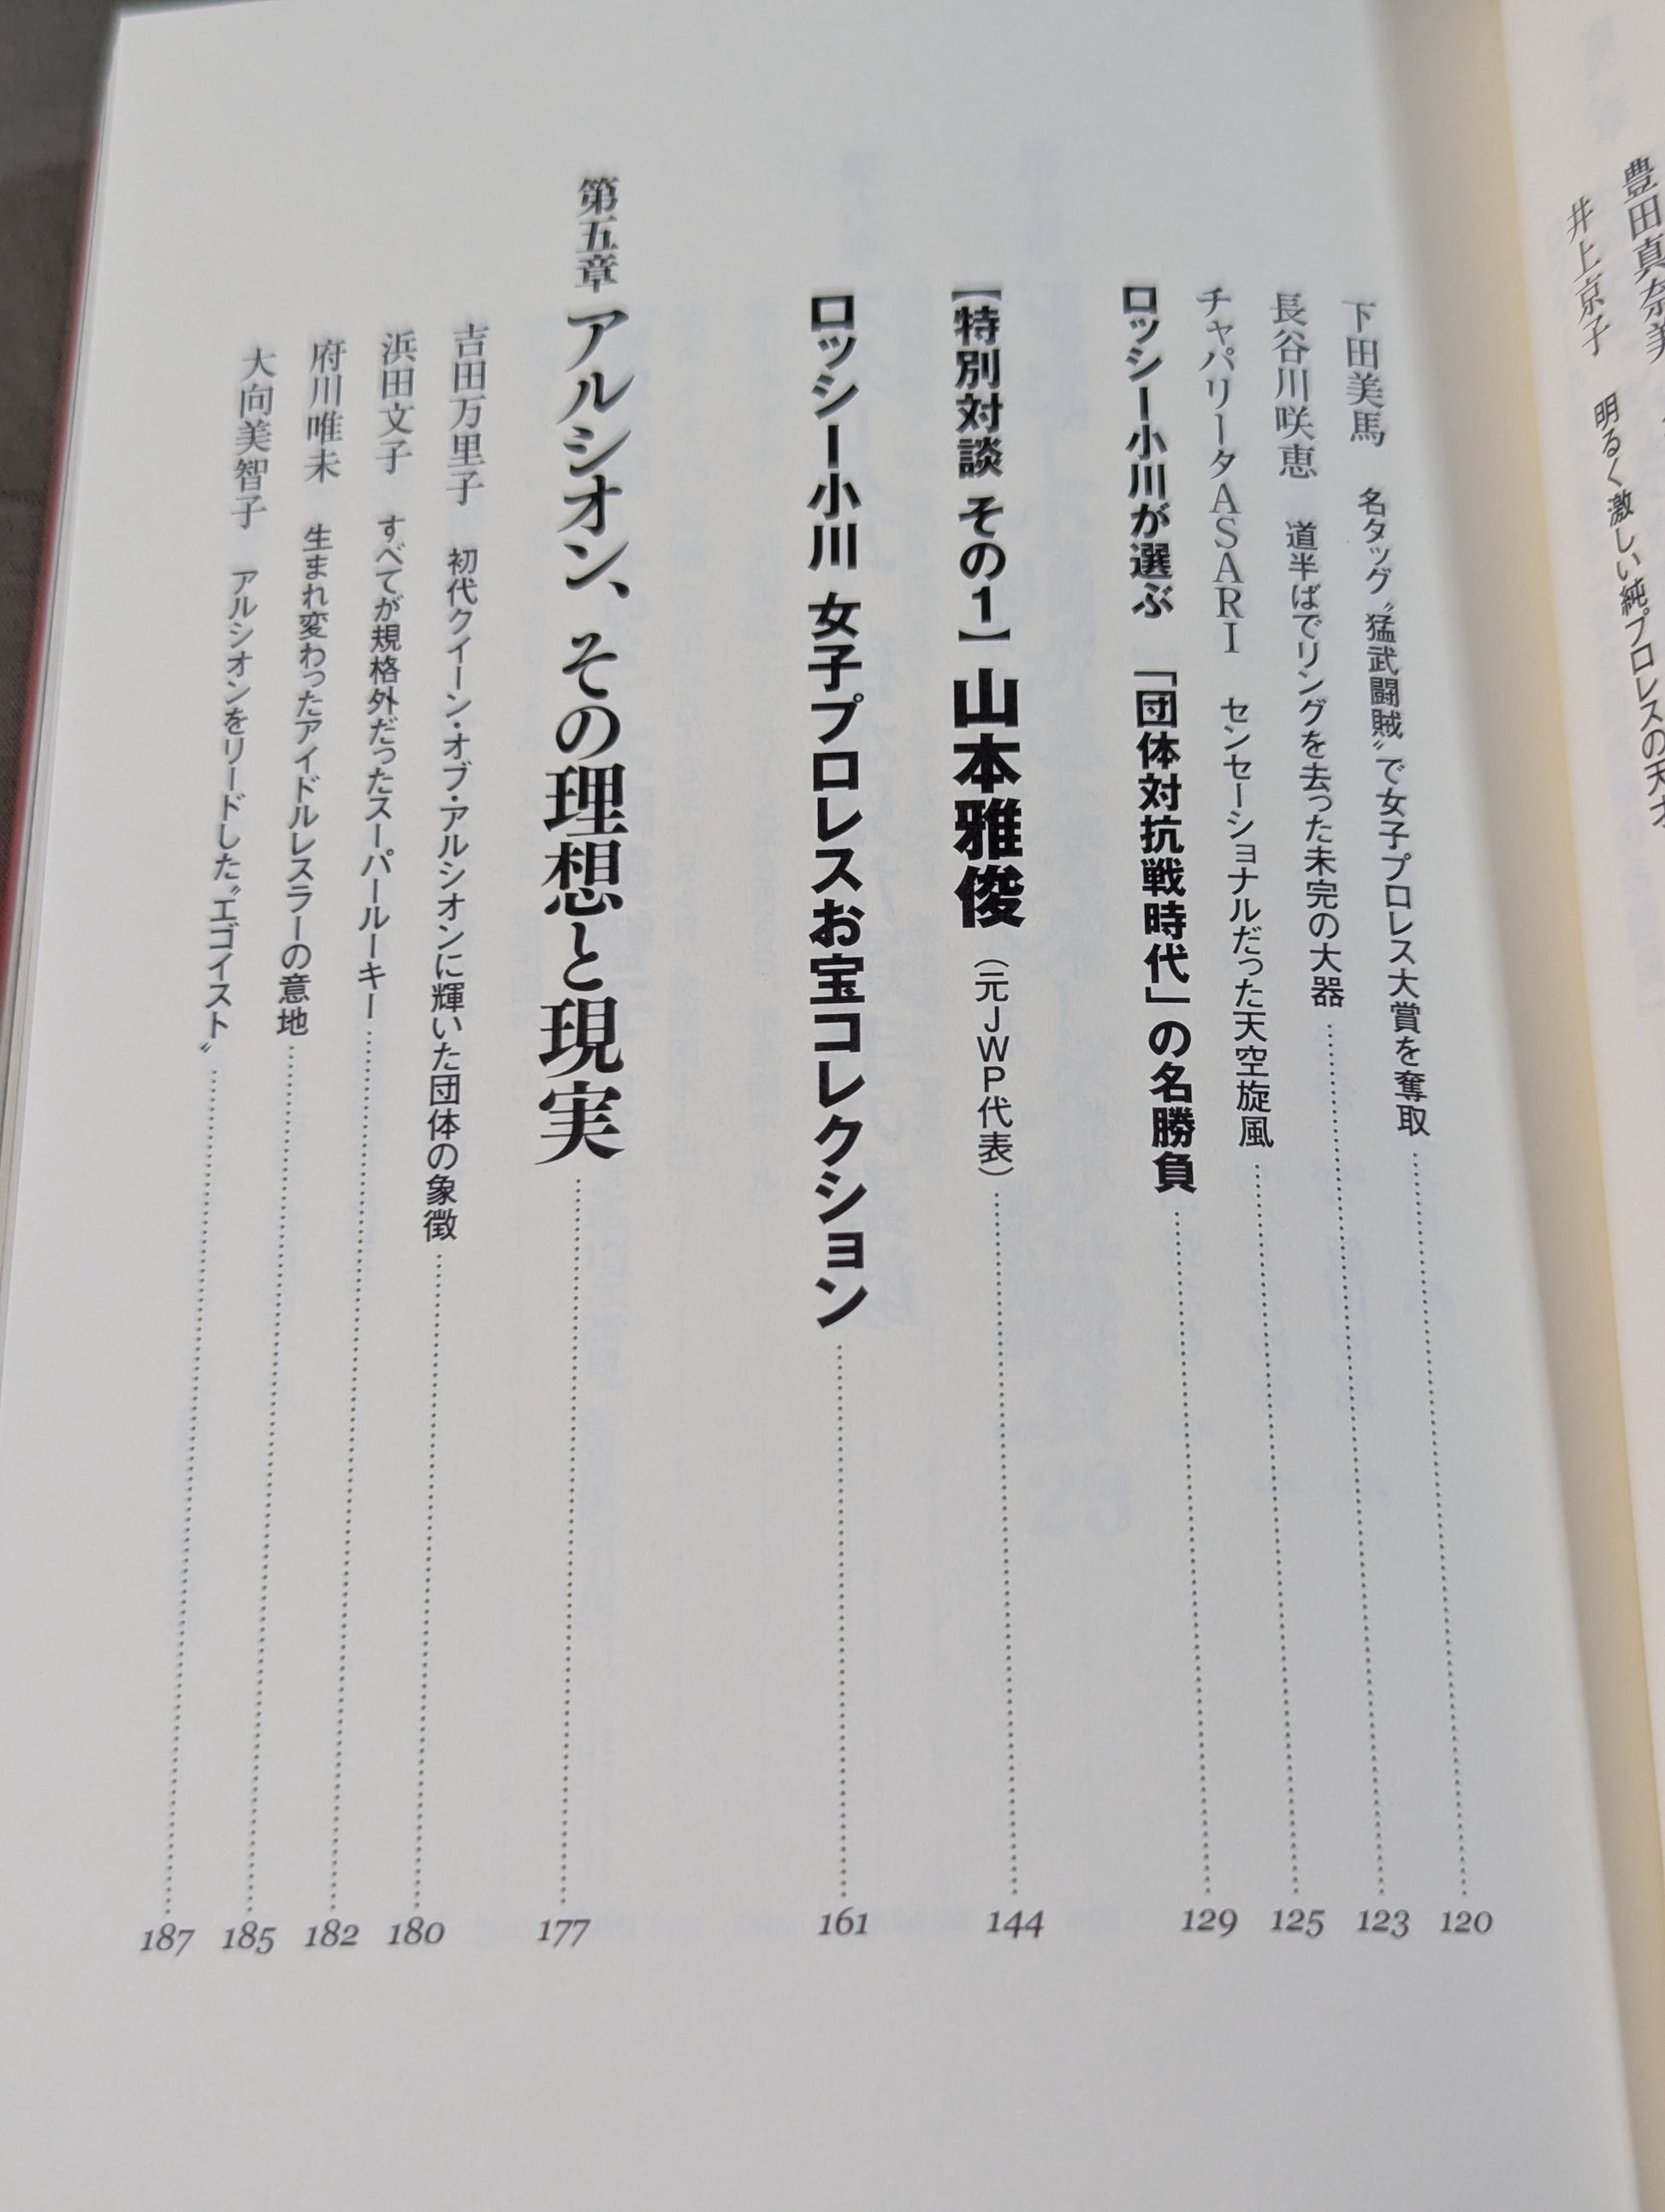 豊田真奈美
井上京子 明るく激しい純プロレスの天才
下田美馬 名タッグ〝猛武闘賊〟で女子プロレス大賞を奪取 120
長谷川咲恵 道半ばでリングを去った未完の大器 123
チャパリータASARI センセーショナルだった天空旋風 125
ロッシー小川が選ぶ 「団体対抗戦時代」の名勝負 129
【特別対談 その1】山本雅俊（元JWP代表） 144
ロッシー小川 女子プロレスお宝コレクション 161
第五章 アルシオン、その理想と現実 177
吉田万里子 初代クイーン・オブ・アルシオンに輝いた団体の象徴 180
浜田文子 すべてが規格外だったスーパールーキー 182
府川唯未 生まれ変わったアイドルレスラーの意地 185
大向美智子 アルシオンをリードした〝エゴイスト〟 187